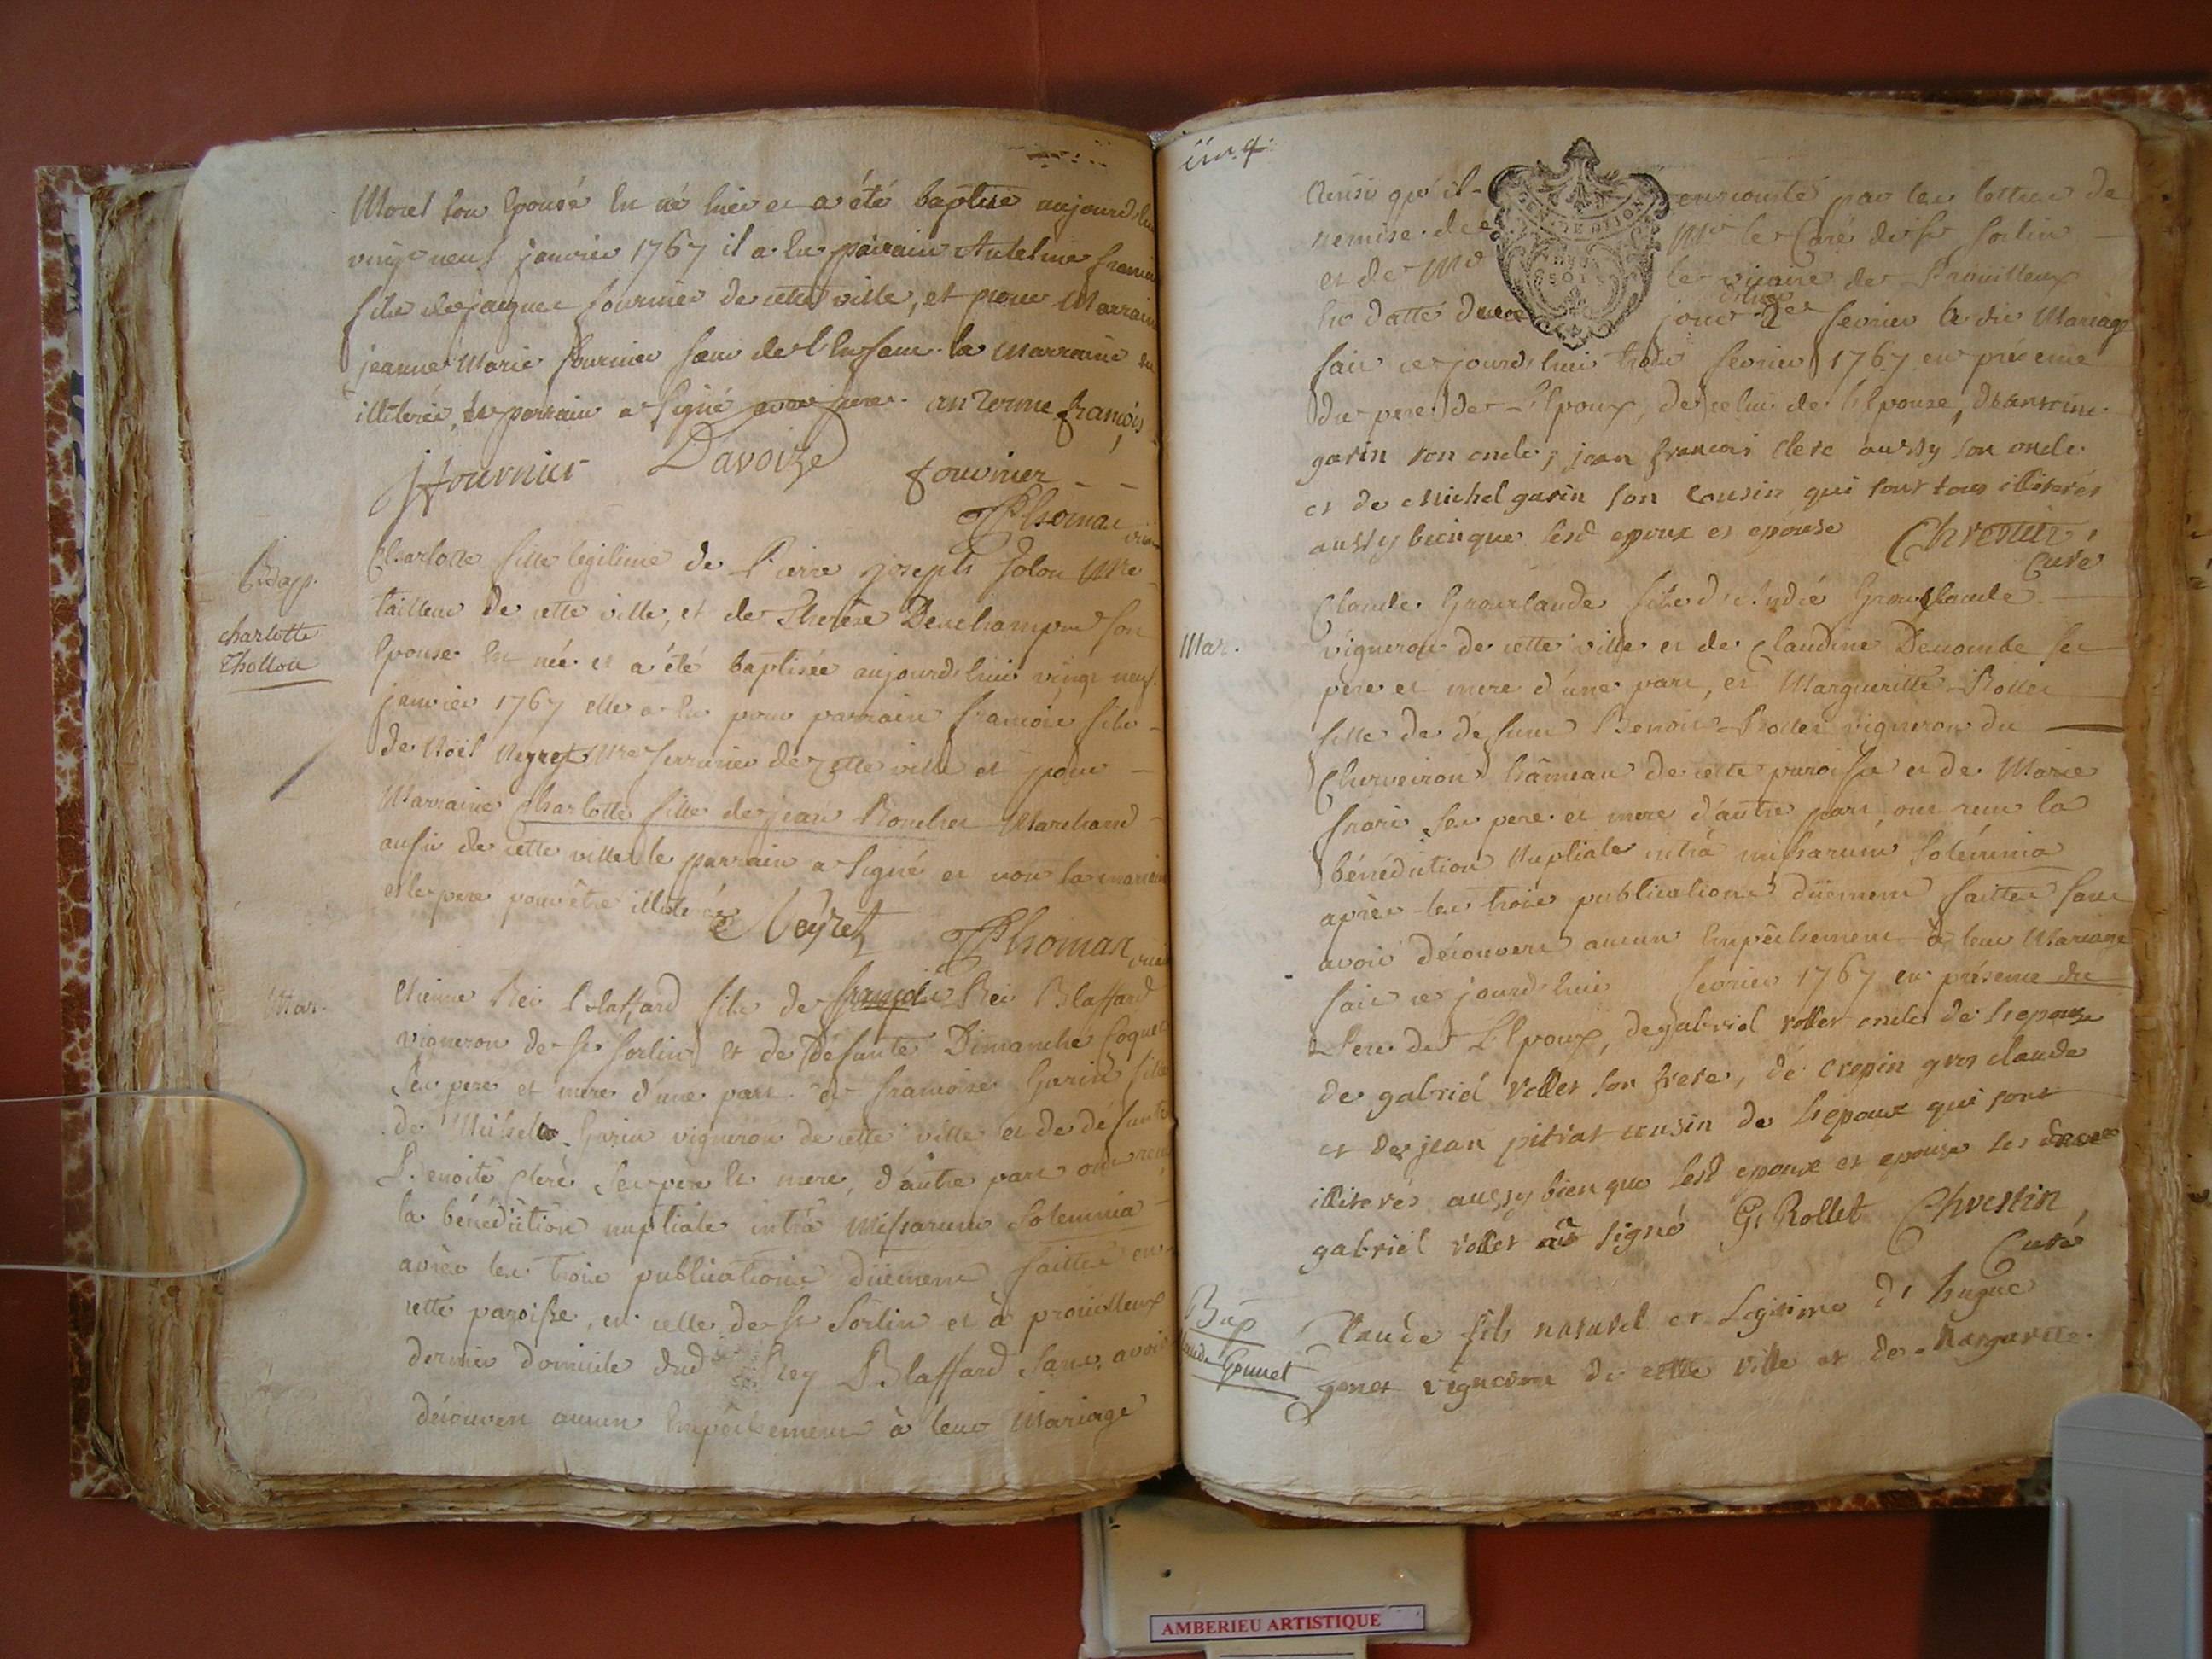 Morel son Epouse Est né hier et a été baptisé aujourd'hui
vingt neuf janvier 1767 il a Eu parrain Antelme francois
fils de jacques fournier de cette ville, et pour Marraine
jeanne Marie fournier sœur de l'Enfant. la Marraine est
illiterée, le parrain a signé avec antelme françois
jfournier Davoize fournier
Thomas
Bap.
charlotte
Thollon
Charlotte fille legitime de Pierre joseph Tolon Mre
tailleur de cette ville, et de Therese Deschamps son
Epouse Est née et a été baptisée aujourd'hui vingt neuf
janvier 1767 elle a Eu pour parrain francois fils
de Noël Neyret Mre serrurier de cette ville et pour
Marraine Charlotte fille de jean Marchand
aussi de cette ville le parrain a signé et non la marraine
et le pere pour être illiterés
Neyret Thomas
Mar.
Etienne Rei Blaffard fils de françois Rei Blaffard
vigneron de St Sorlin et de défunte Dimanche Coquet
Ses pere et mere d'une part et francoise Garin fille
de Michel Garin vigneron de cette ville et de défunte
Benoite Clerc Ses pere et mere, d'autre part ont reçu
la bénédiction nuptiale intrà Missarum Solemnia
après les trois publications düement faittes en
cette paroisse, en celle de St Sorlin et à prouilleux
dernier domicile dud Rey Blaffard Sans avoir
découvert aucun Empêchement à leur Mariage
Ainsi qu'il par les lettres de
remise de Mr le Curé de St Sorlin
et de Mr le vicaire de Prouilleux
En datte du jour de fevrier le dit Mariage
fait ce jourd'hui trois fevrier 1767 en présence
du pere de L'Epoux, de celui de l'Epouse, d'anthelme
garin son oncle, jean francois clerc aussy son oncle
et de Michel garin son Cousin qui sont tous illiterés
aussy bien que lesd epoux et epouse Chrestin,
Curé
Mar.
Claude Grosclaude fils d'André Grosclaude
vigneron de cette ville et de Claudine Ses
pere et mere d'une part, et Margueritte Rollet
fille de défunt Benoit Rollet vigneron du
hâmeau de cette paroisse et de Marie
Ses pere et mere d'autre part, ont reçu la
bénédiction Nuptiale intrà missarum Solémnia
après les trois publications düement faittes sans
avoir découvert aucun Empêchement à leur Mariage
fait ce jourd'hui fevrier 1767 en présence du
Pere de L'Epoux, de gabriel rollet oncle de L'epouse
de gabriel rollet son frere, de crepin gros claude
et de jean pitiat cousin de L'epoux qui sont
illiterés aussy bien que lesd epoux et epouse les deux
gabriel rollet ont signé G: Rollet Chrestin,
Curé
Bap
Claude Gonnet
Claude fils naturel et Legitime d'hugue
gonet vigneron de cette ville et de Margueritte
AMBERIEU ARTISTIQUE